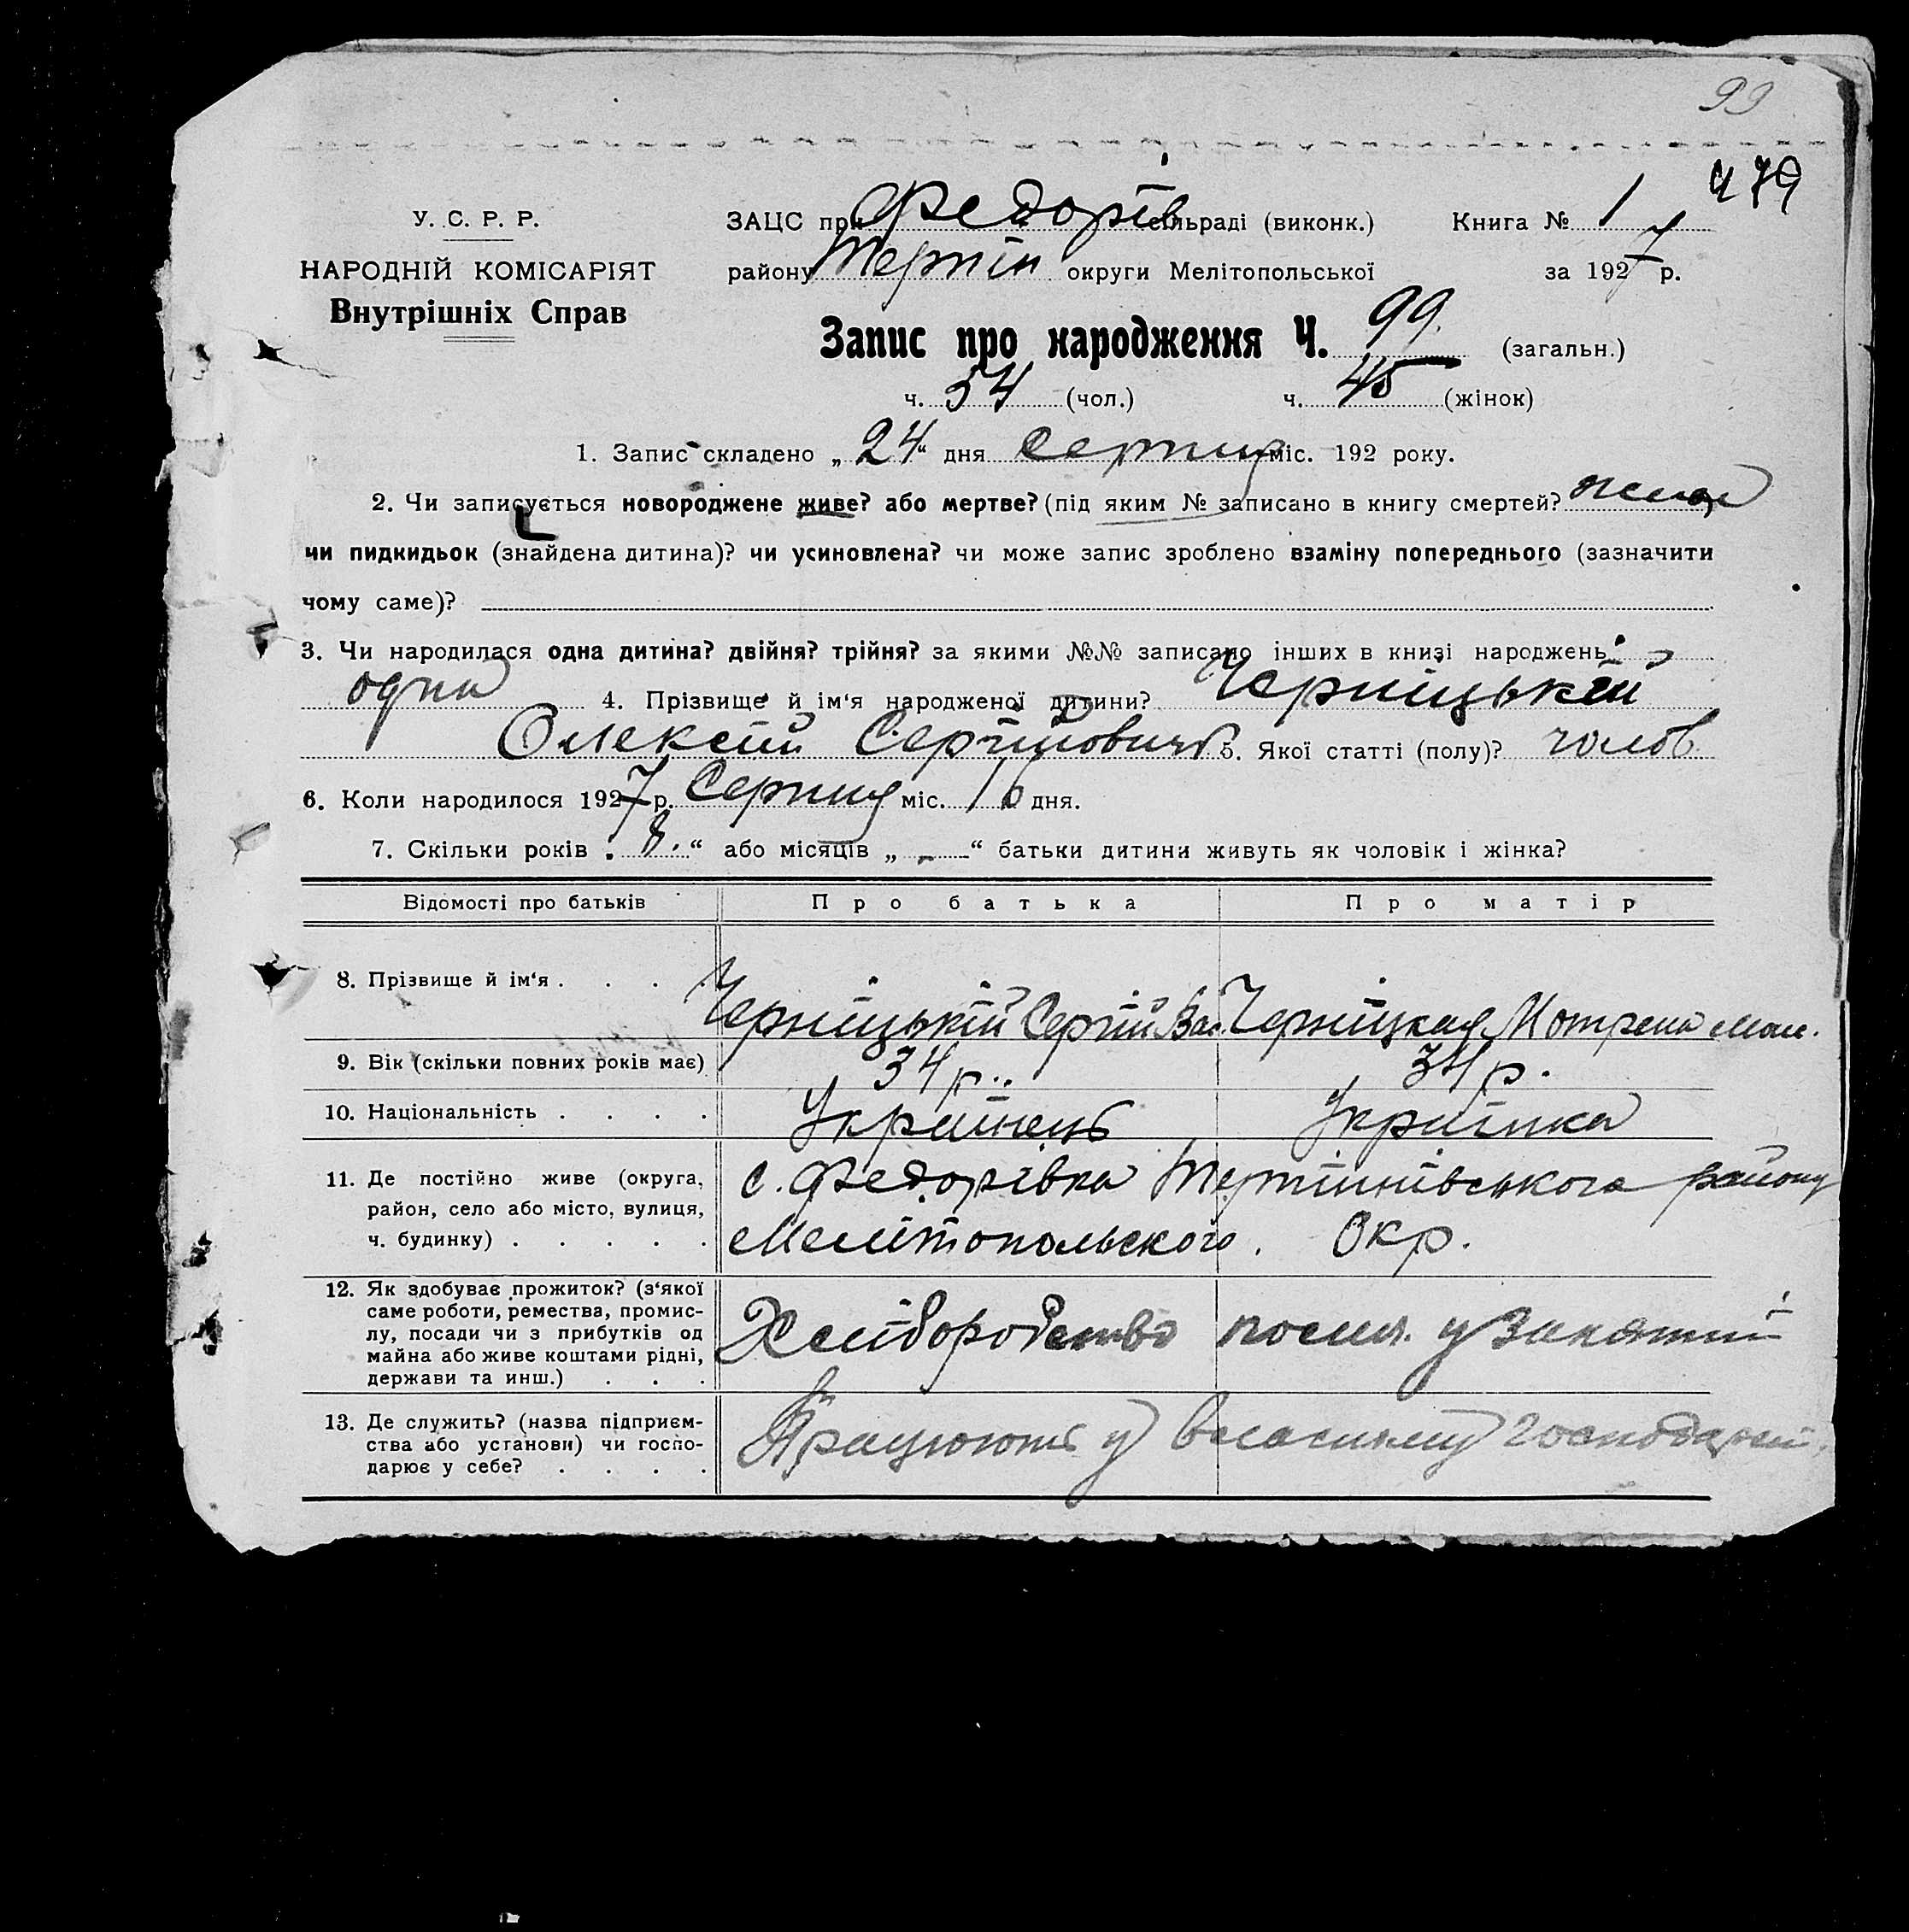 99
479
У. С. Р. Р.
НАРОДНІЙ КОМІСАРІЯТ
Внутрішніх Справ
ЗАЦС при Федорів сільраді (виконк.) Книга № 1
району Терпін округи Мелітопольської за 1927 р.
Запис про народження Ч. 99 (загальн.)
ч. 54 (чол.) ч. 45 (жінок)
1. Запис складено „ 24 “ дня Серпня міс. 192 року.
2. Чи записується новороджене живе? або мертве? (під яким № записано в книгу смертей?
чи пидкидьок (знайдена дитина)? чи усиновлена? чи може запис зроблено взаміну попереднього (зазначити
чому саме)?
3. Чи народилася одна дитина? двійня? трійня? за якими №№ записано інших в книзі народжень?
одна 4. Прізвище й ім‘я народженої дитини? Черніцькій
Олексій Сергійовичь 5. Якої статті (полу)? чолов.
6. Коли народилося 1927 р. Серпня міс. 16 дня.
7. Скільки років „ 8. “ або місяців „ - “ батьки дитини живуть як чоловік і жінка?
Відомості про батьків Про батька Про матір
8. Прізвище й ім‘я . . . . Черніцькій Сергій Вас. Черніцкая Мотрена
9. Вік (скільки повних років має) 34 р. 34 р.
10. Національність . . . . Українець Українка
11. Де постійно живе (округа, район, село або місто, вулиця, ч. будинку) . . . . .
с. Федорівка Терпінівського району
Мелітопольского. Окр.
12. Як здобуває прожиток? (з‘якої саме роботи, ремества, промислу, посади чи з прибутків од майна або живе коштами рідні, держави та инш.) . . .
Хліборобство
13. Де служить? (назва підприємства або установи) чи господарює у себе? . . . .
Працюють у власному